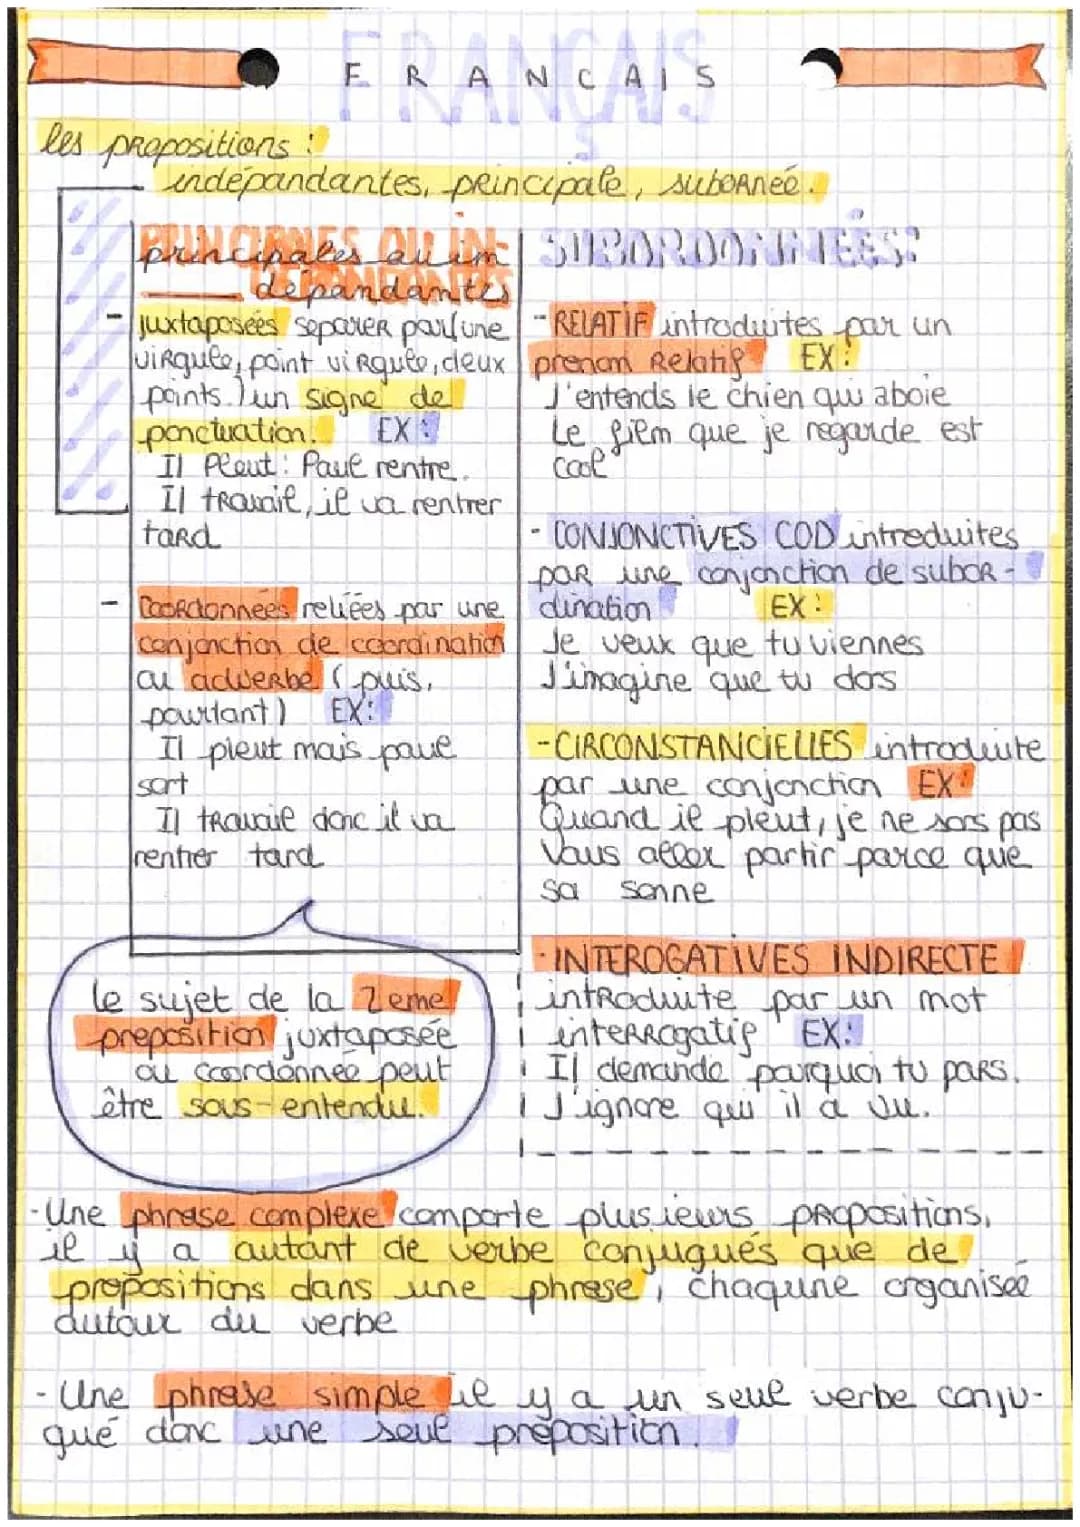 FRANÇAIS
FRANCAIS
les propositions :
indépandantes, principale, subornée.
PRINCIPALES OU IN-
DÉPANDANTES
principales ou in
dépandantes
- juxtaposées séparer par (une
virgule, point virgule, deux
points.) un signe de
ponctuation. EX :
Il Pleut : Paul rentre.
Il travail, il va rentrer
tard
- Coordonnées reliées par une
conjonction de coordination
ou adverbe (puis,
pourtant) EX :
Il pleut mais paul
sort
Il travaile donc il va
rentrer tard
le sujet de la 2eme
preposition juxtaposée
ou coordonnée peut
être sous-entendu.
SUBORDONNÉES :
- RELATIF introduites par un
pronom Relatif EX :
J'entends le chien qui aboie
Le film que je regarde est
cool
- CONJONCTIVES COD introduites
par une conjonction de subor-
dination EX :
Je veux que tu viennes
J'imagine que tu dors
- CIRCONSTANCIELLES introduite
par une conjonction EX :
Quand il pleut, je ne sors pas
Vous allez partir parce que
sa sonne
- INTEROGATIVES INDIRECTE
introduite par un mot
interrogatif EX :
Il demande pourquoi tu pars.
J'ignore qui il a vu.
- Une phrase complexe comporte plusieurs propositions,
il y a autant de verbe conjugués que de
propositions dans une phrase, chaqune organisée
autour du verbe
- Une phrase simple il y a un seul verbe conju-
gué donc une seul préposition.